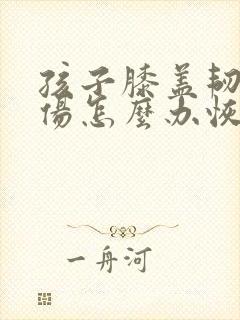 孩子膝盖韧
傷怎麼办恢
一舟河